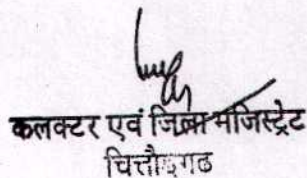 कलक्टर एवं जिला मजिस्ट्रेट
चित्तौड़गढ